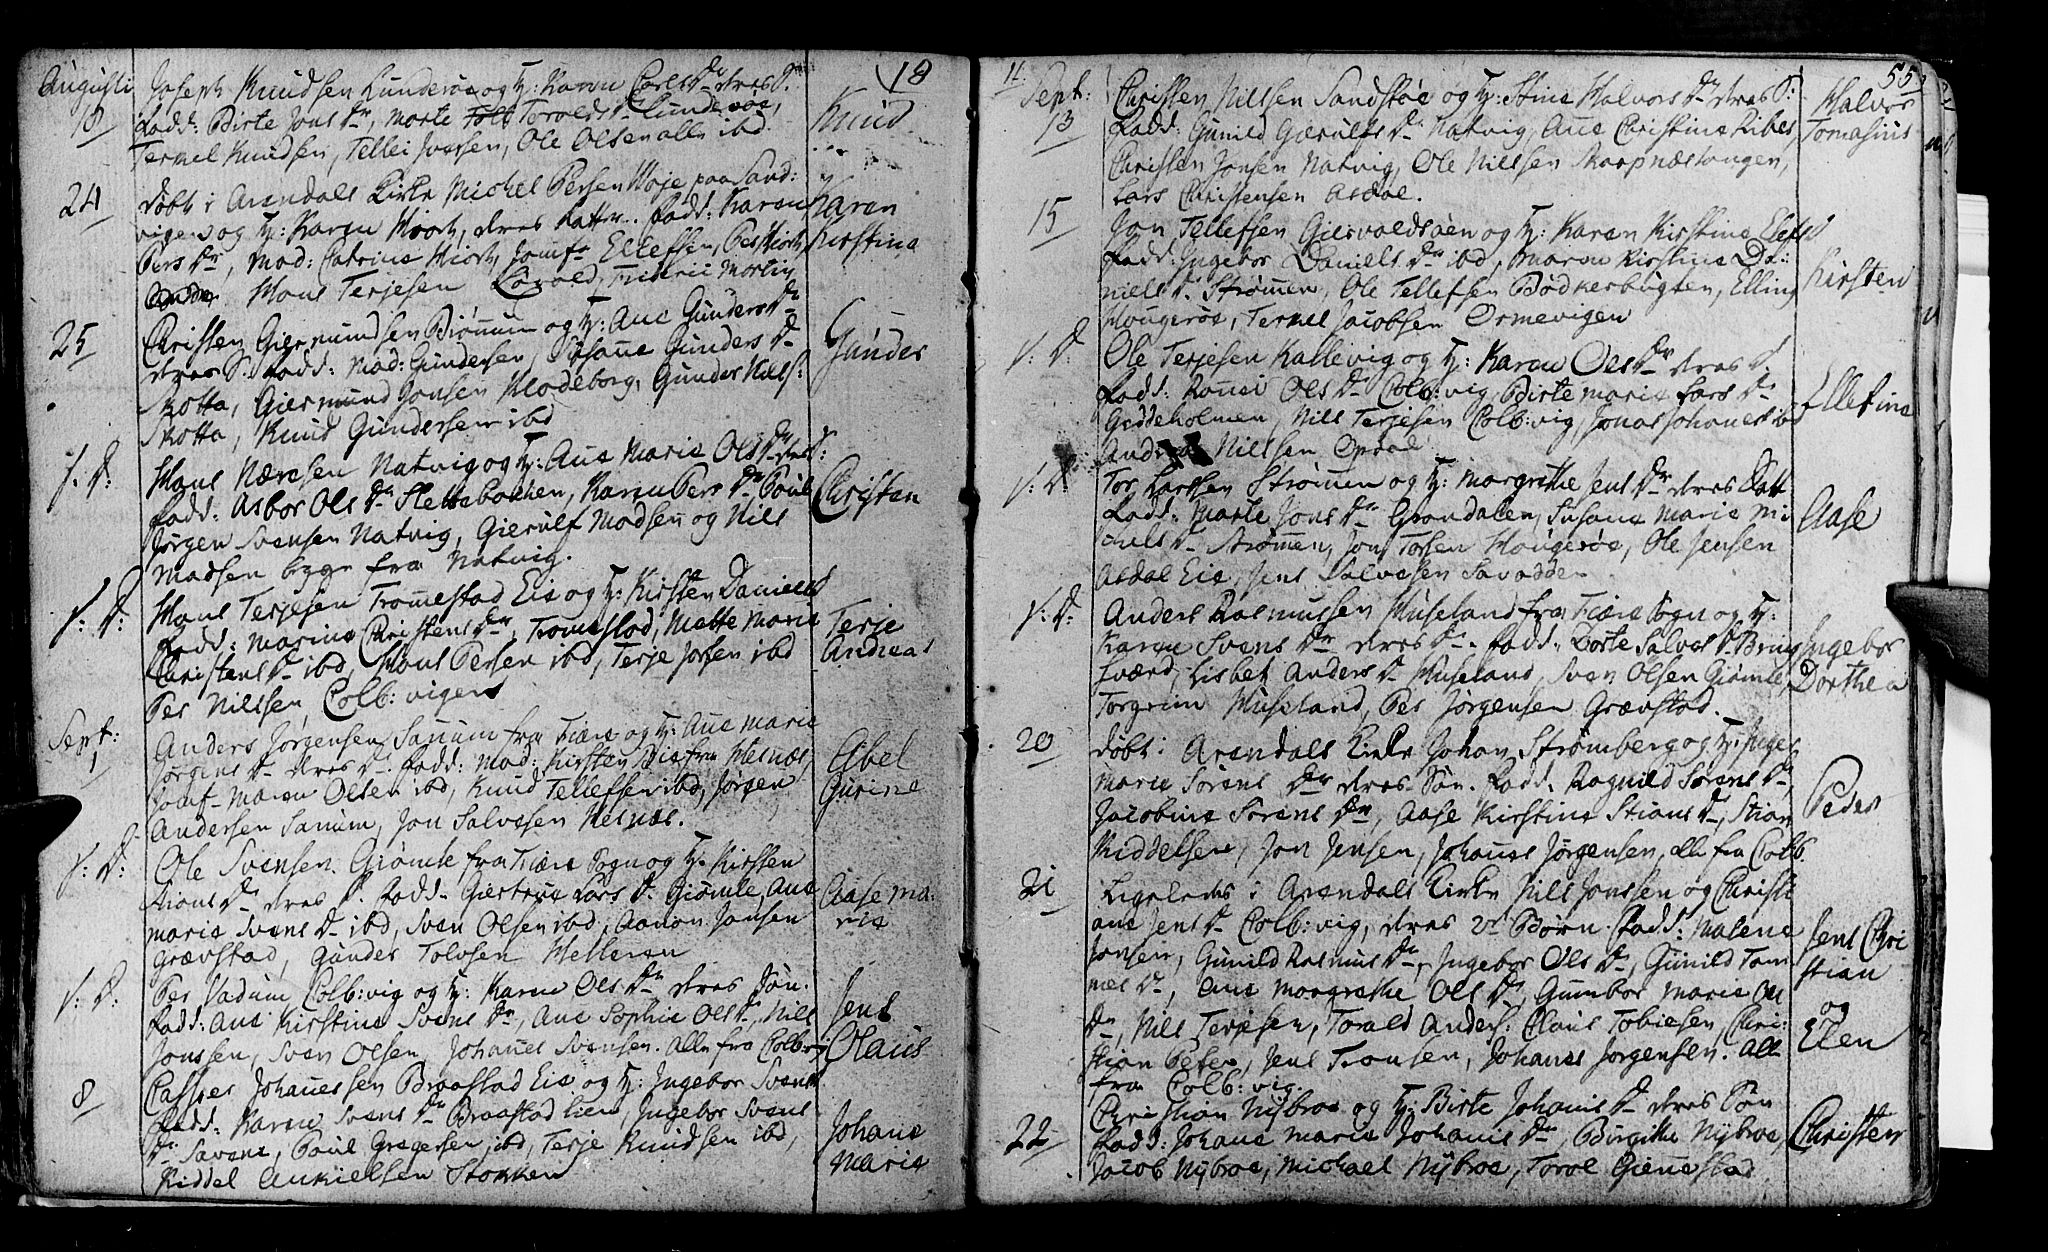 18
Augusti
18
Joseph Knudsen Lunderøe og H: Karen Carls Dr deres S.
fadd: Birte Jons Dr, Marte Torolds Dr Lunderøe,
Terkel Knudsen, Tellef Iversen, Ole Olsen alle ibd.
Knud
24
døbt i Arendals Kirke Michel Persen Høje paa Sand:
vigen og H: Karen Hiort, deres datter. fadd: Karen
Pers Dr, Mad: Catrine Hiort, Jomf. Ellefsen, Per Hiort,
Hans Terjesen Løvold, Frideric Martin
Karen
Kirstina
25
Christen Giermundsen Brømum og H: Ane Gunders Dr
deres S. fadd: Mad: Gundersen, Susane Gunders Dr
Skotta, Giermund Jonsen Klodeborg, Gunder Nils:
Skotta, Knud Gundersen ibd
Gunder
S: D:
Hans Næresen Natvig og H: Ane Marie Ols Dr deres S:
fadd: Asbor Ols Dr Slettebakken, Karen Pers Dr Poul
Jørgen Svensen Natvig, Gierulf Madsen og Nils
Madsen begge fra Natvig.
Christen
S: D:
Hans Terjesen Tromestad Eie og H: Kirsten Daniels
fadd: Marine Christens Dr, Tromestad, Mette Marie
Christens Dr ibd, Hans Persen ibd, Terje Josen ibd
Per Nilssen, Colb:vigen
Terje
Andreas
Sept:
1
Anders Jørgensen Sanum fra Fiære og H: Ane Marie
Jørgens Dr deres Dr. fadd: Mad: Kirsten Die fra Nesnæs,
Jomf. Maren Olsen ibd, Knud Tellefsen ibd, Jørgen
Andersen Sanum, Jon Salvesen Nesnæs.
Abel
Gurine
S: D:
Ole Svensen Giømle fra Fiære Sogn og H: Kirsten
Stians Dr deres D. fadd. Giertrue Lars D. Giømle, Ane
Marie Svens Dr ibd, Sven Olsen ibd, Aanon Jonsen
Grævstad, Gunder Tolvsen Melleren
Aase Ma:
rie
S: D:
Per Vadum, Colb:vig og H: Karen Ols Dr deres Søn.
fadd: Ane Kirstine Svens Dr, Ane Sophie Ols Dr, Nils
Jonssen, Sven Olsen, Johanes Svensen. Alle fra Colb:v
Jens
Olaus
8
Casper Johanessen Braastad Eie og H: Ingebor Svens
fadd: Karen Svens Dr Braastad lien, Ingebor Svens
Dr Savene, Poul Gregersen ibd, Terje Knudsen ibd,
Kiddel Ankielsen Stokken
Johane
Marie
11.
55
Sept:
13
Christen Nilssen Sandstøe og H: Stine Halvors Dr deres S:
fadd: Gunild Gierulfs Dr Natvig, Ane Christine Ribes,
Christen Jonsen Natvig, Ole Nilssen Skarpnæstangen,
Lars Christensen Asdal.
Halvor
Tomasius
15
Jon Tellefsen Giervoldsøen og H: Karen Kirstine Elefs
fadd: Ingebor Daniels Dr ibd, Maren Kirstine Da:
niels D. Strømmen, Ole Tellefsen Bødkerbugten, Elling
Hougerøe, Terkel Jacobsen Ormevigen
Kirsten
S: D:
Ole Terjesen Kallevig og H: Karen Ols Dr deres D.
fadd: Ronnei Ols Dr Colb:vig, Birte Marie Lars Dr
Gieddeholmen, Nils Terjesen Colb:vig, Jonas Johanes ibd
Andreas Nilssen Opdal
Ellefine
S: D:
Tor Larssen Strømmen og H: Margrethe Jens Dr deres Datt
fadd: Marte Jons Dr Grondalen, Susane Marie Ni
chels Dr Strømmen, Jon Torsen Hougerøe, Ole Jensen
Asdal Eie, Jens Salvesen Savadde
Aase
S: D:
Anders Rasmussen Museland fra Fiære Sogn og H:
Karen Svens Dr deres Dr. fadd: Dorte Salves D. Bring
sværd, Lisbet Anders Dr Museland, Sven Olsen Giømle,
Torgrim Museland, Per Jørgensen Grævstad.
Ingebor
Dorthea
20
døbt i Arendals Kirke Johan Strømberg og H: Inger
Marie Sørens Dr deres Søn. fadd. Ragnild Sørens Dr,
Jacobine Sørens Dr, Aase Kirstine Stians Dr, Stian
Kiddelsen, Jon Jensen, Johanes Jørgensen, alle fra Colb.
Peder
21
Ligeledes i Arendals Kirke Nils Jonssen og Christi
ane Jens Dr Colb:vig, deres 2de Børn. fadd: Malene
Jonsen, Gunild Rasmus Dr, Ingebor Ols Dr, Gunild Tom
mes Dr, Ane Margrethe Ols Dr, Gumbor Marie Ols
Dr, Nils Terjesen, Torald Anders. Claus Tobiesen, Chri:
stian Peter, Jens Tronsen, Johanes Jørgensen. Alle
fra Colb:vig.
Jens Chri
stian
og
Elen
22
Christian Nybroe og H: Birte Johanis Dr deres Søn
fadd: Johane Marie Johanis Dr, Birgithe Nybroe,
Jacob Nybroe, Michael Nybroe, Torol Gienestad
Christen